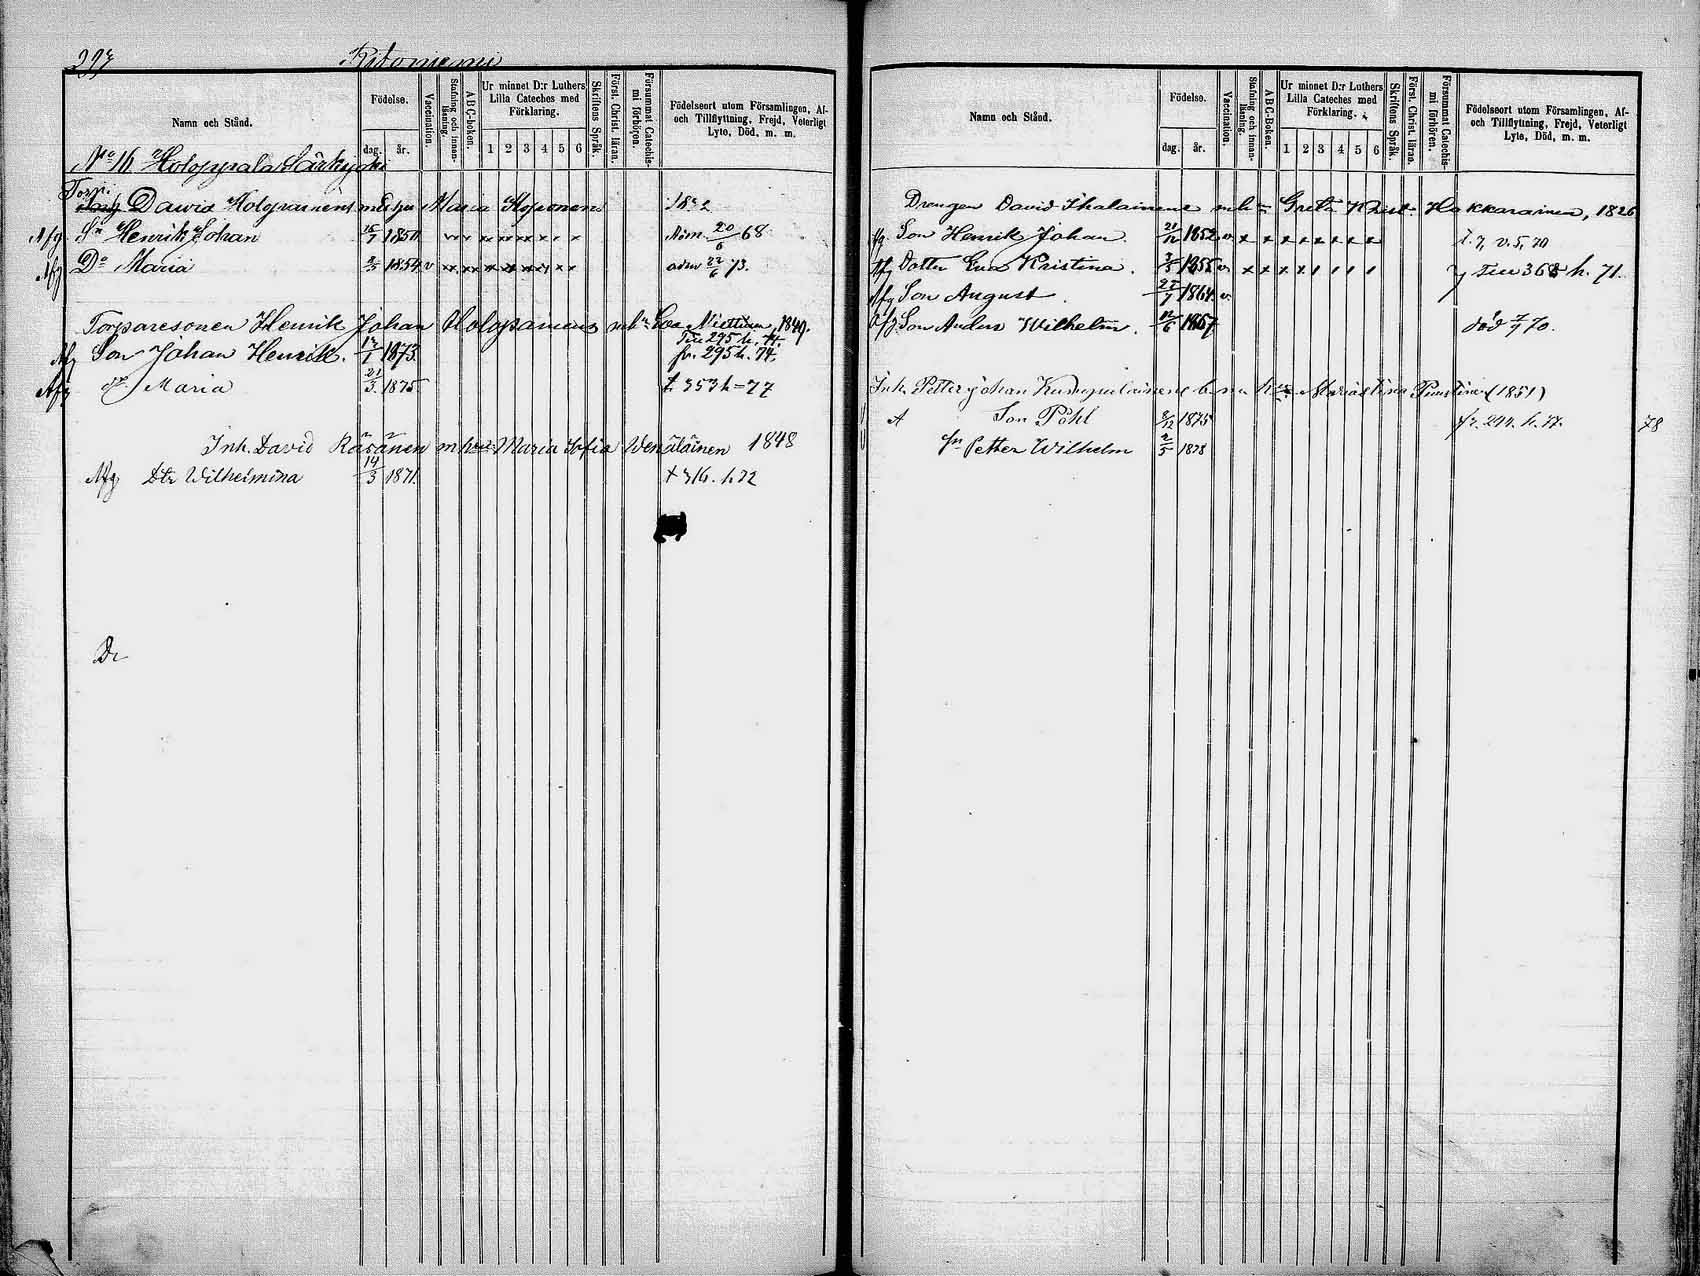 297
Ritoniemi
Namn och Stånd.
Födelse.
dag. år.
Vaccination.
Stafning och innanläsning.
ABC-boken.
Ur minnet D:r Luthers Lilla Cateches med Förklaring.
1 2 3 4 5 6
Skriftens Språk.
Först. Christ. läran.
Försummat Catechismi förhören.
Födelseort utom Församlingen, Af- och Tillflyttning, Frejd, Veterligt Lyte, Död, m. m.
No 16 Holoppala
Torp. David Holopainens Maria Koponen No 2
Afg Sn Henrik Johan 1850 Adm. 20/6 68
Afg Do Maria 2/5 1854 v adm 22/6 73.
Torparesonen Henrik Johan Holopainens m h Eva Miettinen, 1849.
Till 295 h. 74.
Afg Son Johan Henrik. 1873. fr. 295 h. 74.
Afg Maria 21/3 1875 t. 353 h = 77
Inh. David Räsänen m h Maria Sofia Wenäläinen 1848
Afg Dtr Wilhelmina 14/3 1871. t 316. h 72
Dr
Namn och Stånd.
Födelse.
dag. år.
Vaccination.
Stafning och innanläsning.
ABC-boken.
Ur minnet D:r Luthers Lilla Cateches med Förklaring.
1 2 3 4 5 6
Skriftens Språk.
Först. Christ. läran.
Försummat Catechismi förhören.
Födelseort utom Församlingen, Af- och Tillflyttning, Frejd, Veterligt Lyte, Död, m. m.
Drengen David Ihalainens m h Greta Krist. Hakkarainen, 1826
Afg. Son Henrik Johan. 21/12 1852 v.
Afg Dotter Eva Kristina. 3/5 1855 v. Till 368 h. 71.
Afg Son August. 27/7 1864 v.
Afg. Son Anders Wilhelm. 12/6 1867 död 7/7 70.
Inh. Petter Johan
A Son Pohl 8/12 1875 fr. 294. h. 77. 78
Sn Petter Wilhelm 2/5 1878